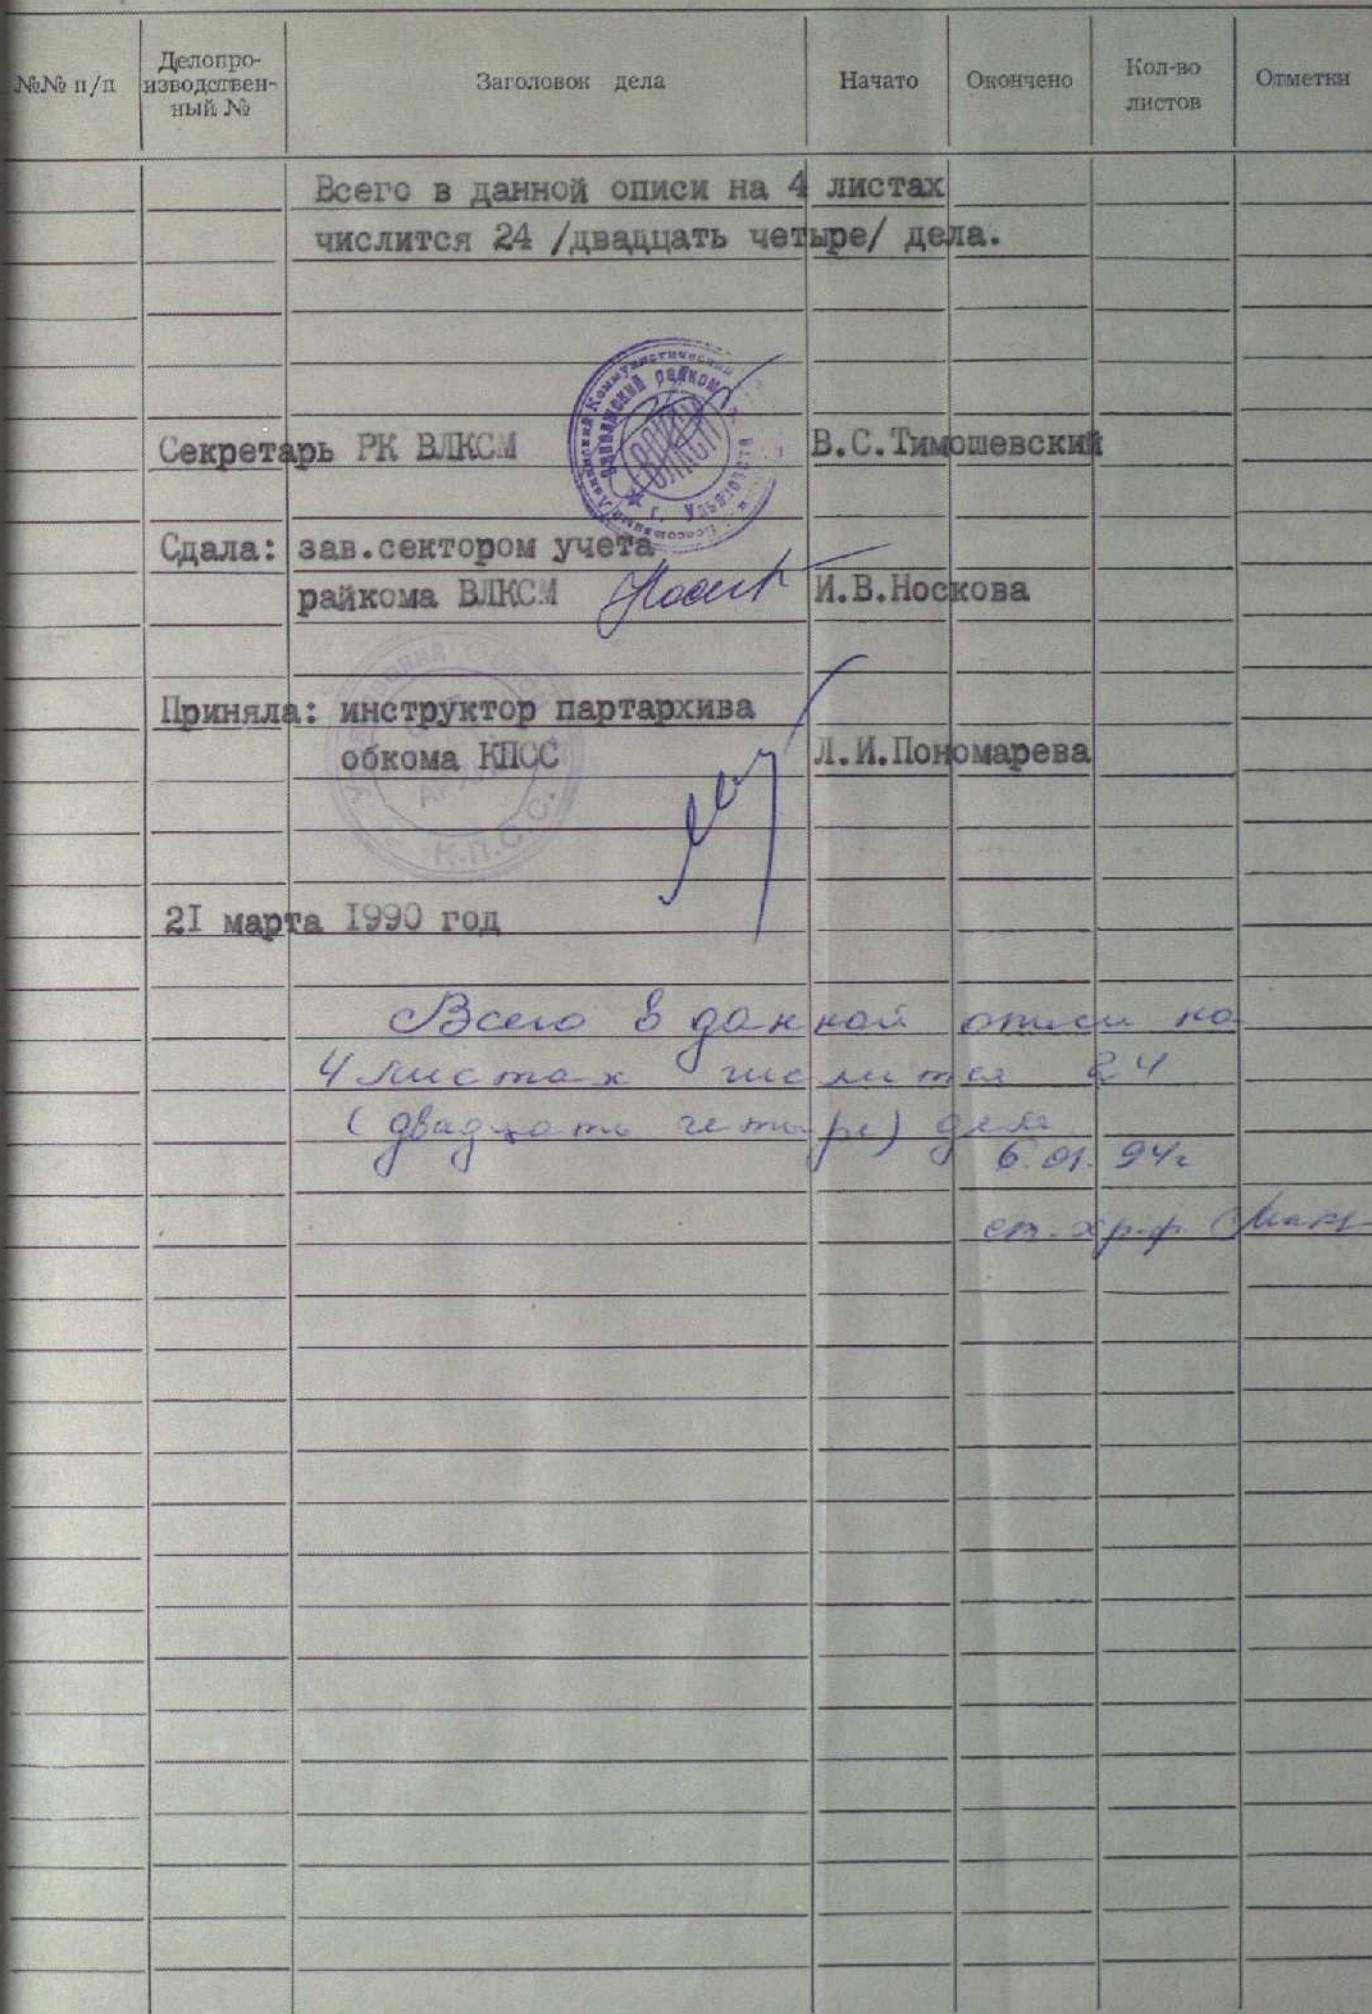 №№ п/п
Делопро-
изводствен-
ный №
Заголовок дела
Начато
Окончено
Кол-во
листов
Отметки
Всего в данной описи на 4 листах
числится 24 /двадцать четыре/ дела.
Ленинский Коммунистический
райком
ВЛКСМ
г. Ульяновска
Секретарь РК ВЛКСМ В.С.Тимошевский
Сдала: зав.сектором учета
райкома ВЛКСМ И.В.Носкова
Приняла: инструктор партархива
обкома КПСС Л.И.Пономарева
К.П.С.С.
21 марта 1990 год
Всего в данной описи на
4 листах числится 24
(двадцать четыре) дела
6.01.94г
ст. хр.ф.